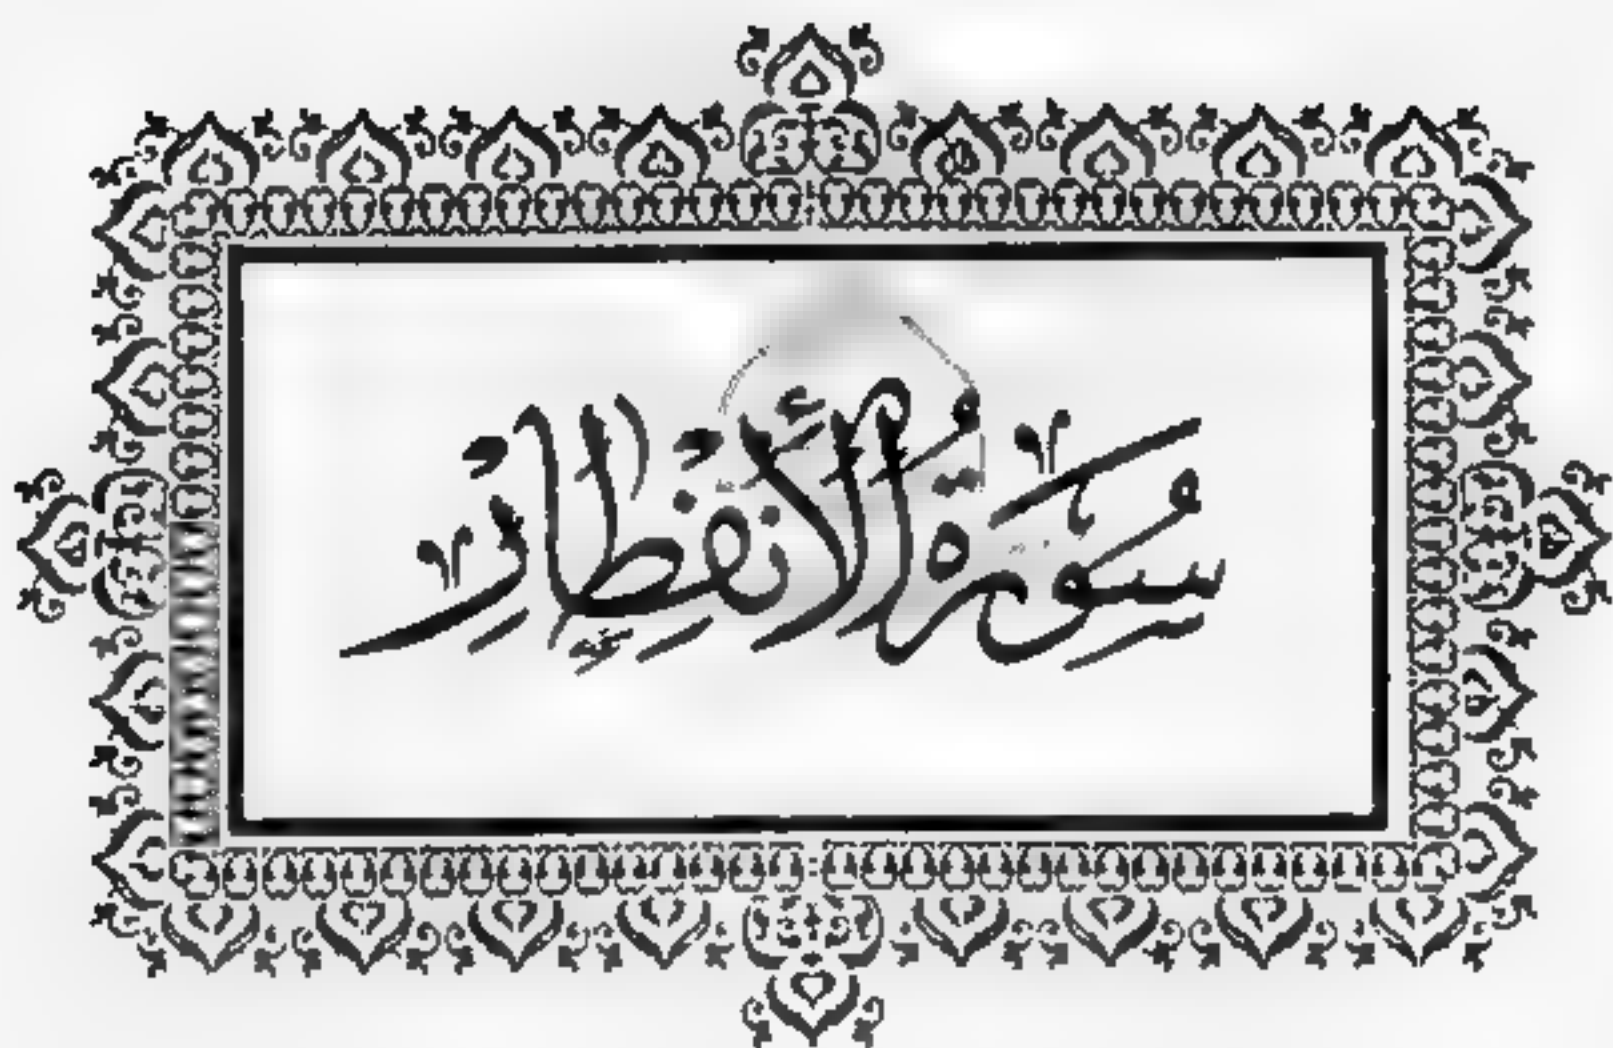 سُورَةُ الْأَنْفِطَارِ